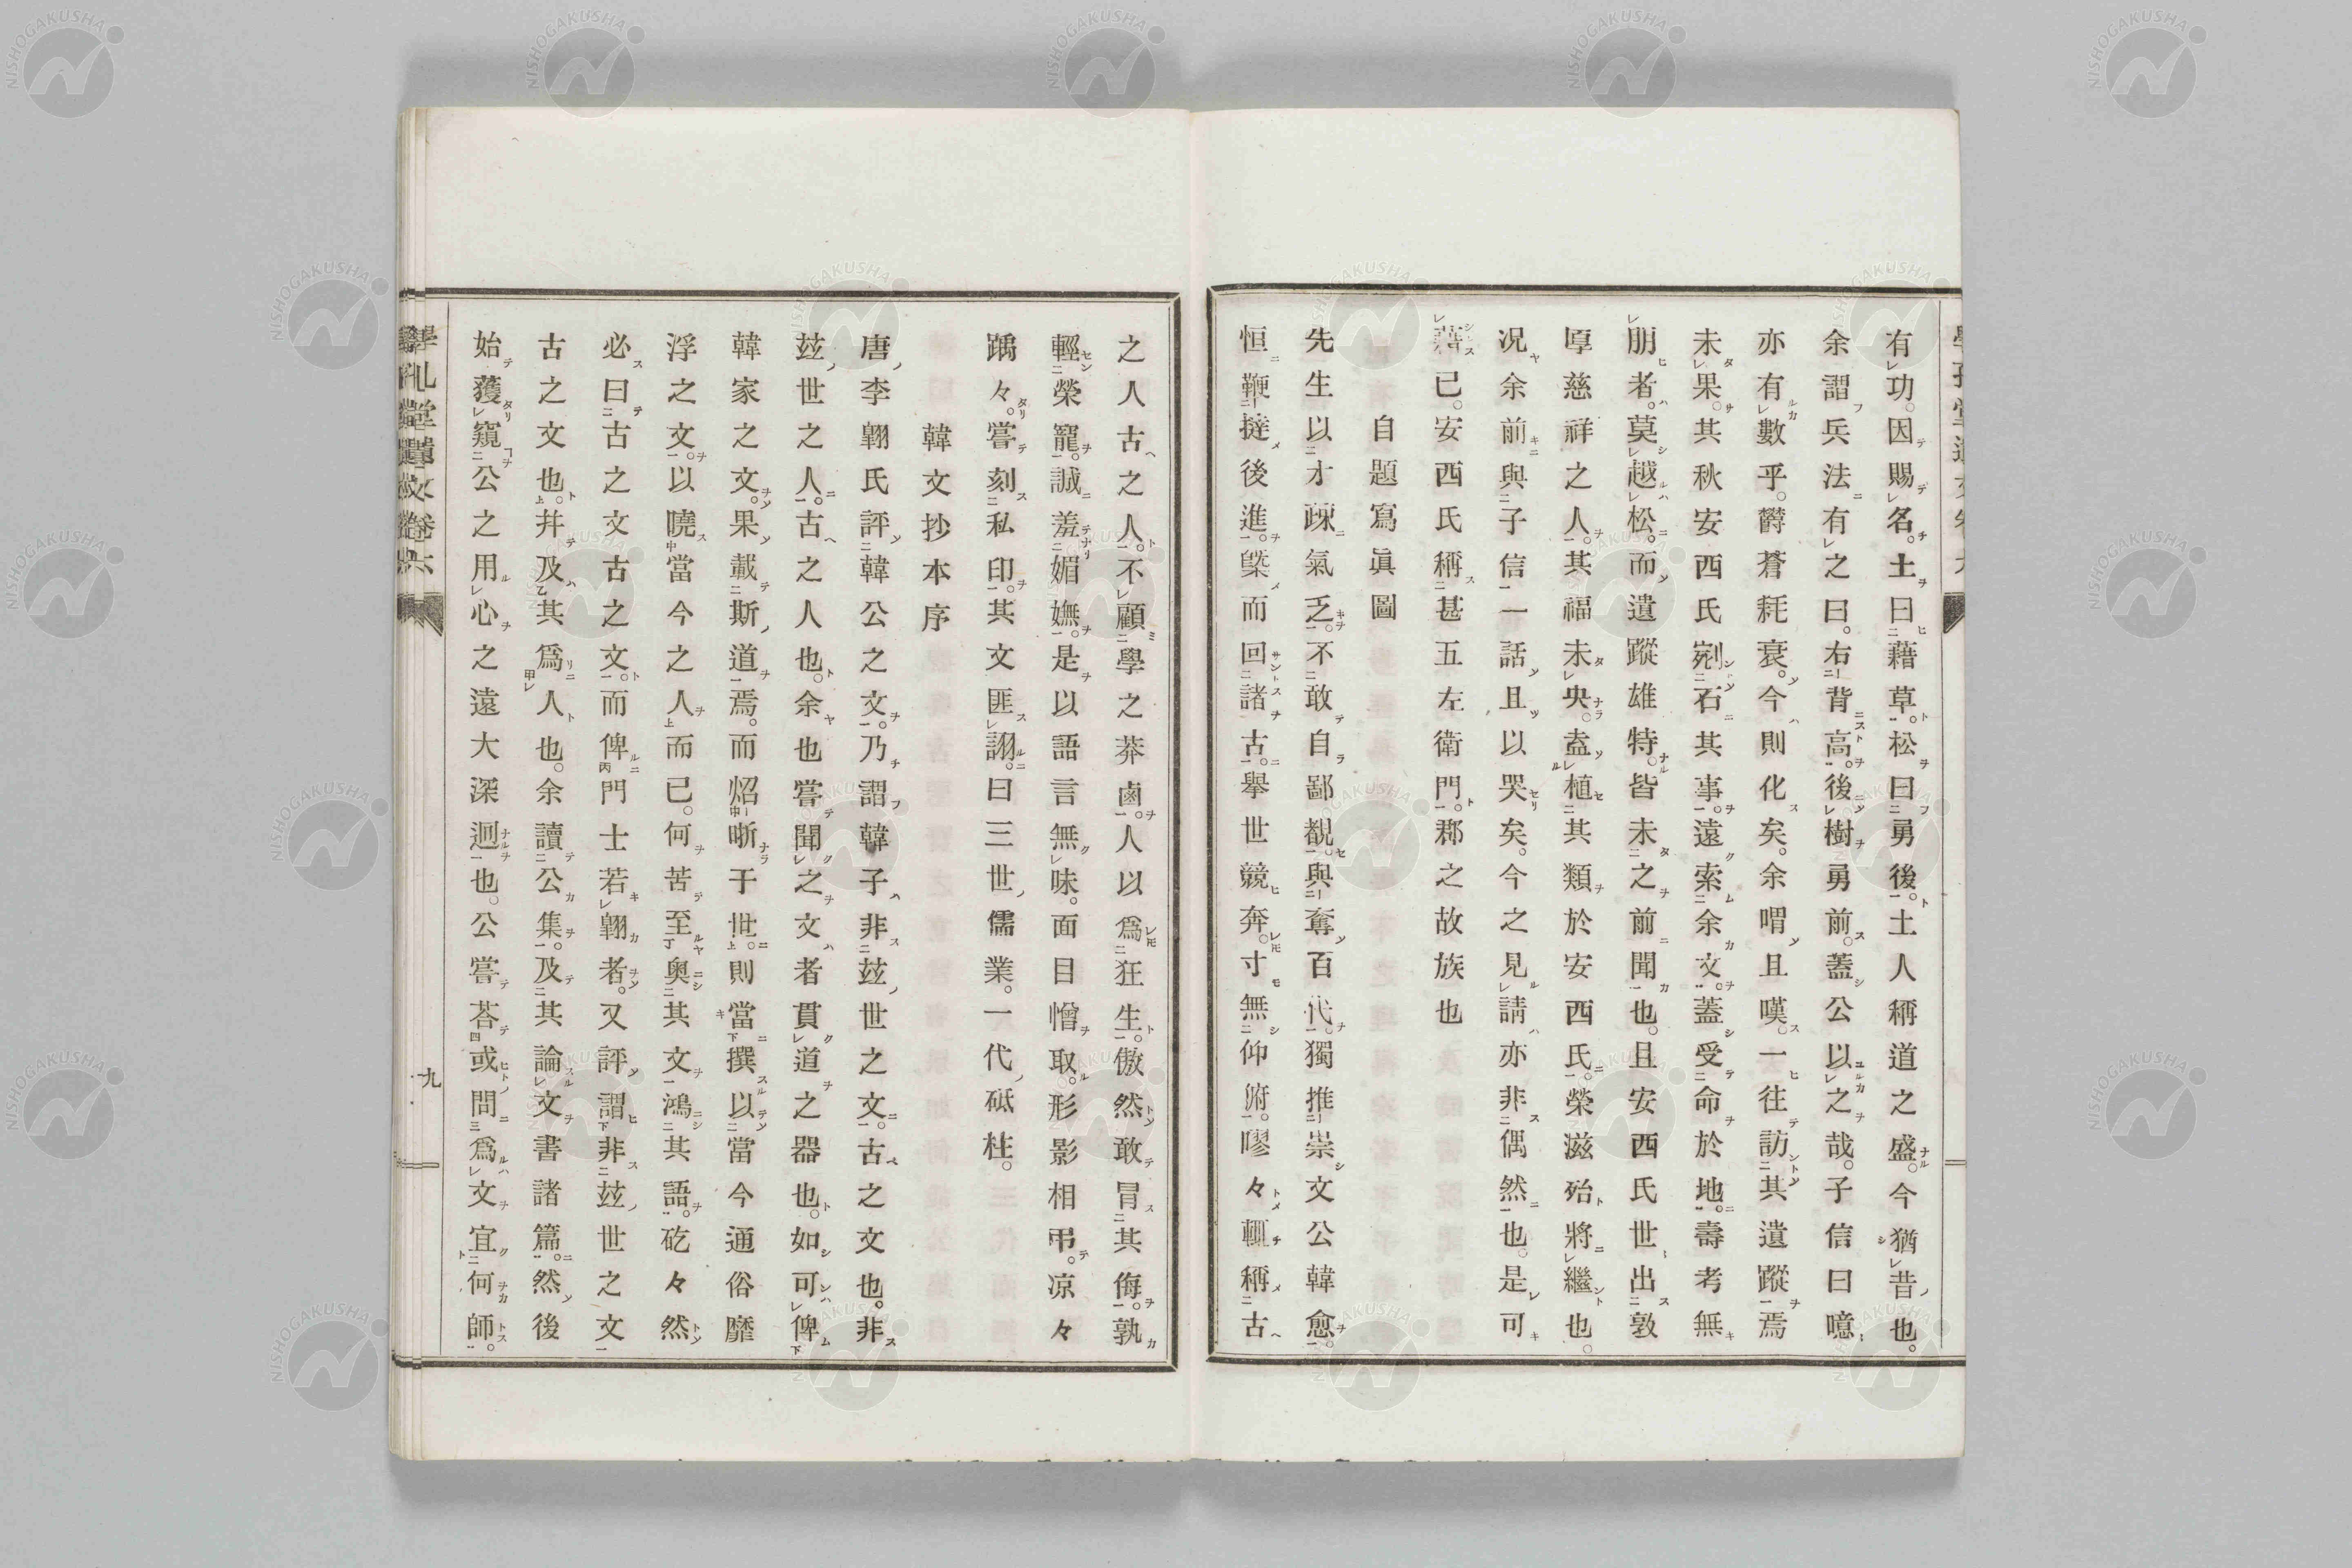 有功。因賜名。土曰藉草。松曰勇後。土人稱道之盛。今猶昔也。
余謂兵法有之曰。右背高。後樹勇前。蓋公以之哉。子信曰噫
亦有數乎。欝蒼秏衰。今則化矣。余喟且嘆。一往訪其遺蹤焉
未果。其秋安西氏剜石其事。遠索余文。蓋受命於地。壽考無
朋者。莫越松。而遺蹤雄特。皆未之前聞也。且安西氏世出敦
厚慈祥之人。其福未央。盍植其類於安西氏。榮滋殆將繼也。
况余前與子信一話且以哭矣。今之見請亦非偶然也。是可
已。安西氏稱甚五左衛門。郡之故族也
自題寫眞圖
先生以才疎氣乏。不敢自鄙覩。與奪百代。獨推崇文公韓愈。
恒鞭撻後進。槩而回諸古。擧世競奔。寸無仰俯。嘐々輒稱古
之人古之人。不顧學之莽鹵。人以爲狂生。傲然敢冒其侮。孰
輕榮寵。誠羞媚嫵。是以語言無味。面目憎取。形影相弔。凉々
踽々。嘗刻私印。其文匪詡。曰三世儒業。一代砥柱。
韓文抄本序
唐李翺氏評韓公之文。乃謂韓子非玆世之文。古之文也。非
玆世之人。古之人也。余也嘗聞之文者貫道之器也。如可俾
韓家之文。果載斯道焉。而炤晣于世。則當撰以當今通俗靡
浮之文。以曉當今之人而已。何苦至奧其文鴻其語。矻々然
必曰古之文古之文。而俾門士若翺者。又評謂非玆世之文
古之文也。幷及其爲人也。余讀公集。及其論文書諸篇。然後
始獲窺公之用心之遠大深迥也。公嘗荅或問爲文宜何師。
學孔堂遺文卷六
九